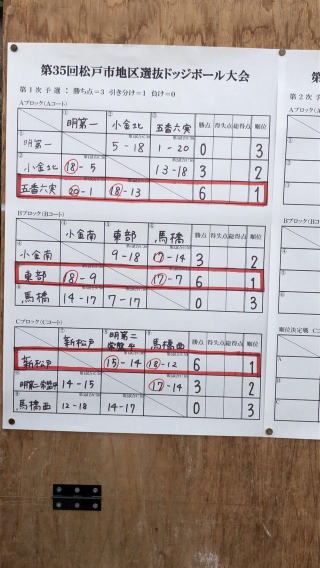 第35回松戸市地区選抜ドッジボール大会
第1次予選：勝ち点＝3 引き分け＝1 負け＝0
Aブロック(Aコート)
明第一 小金北 五香六実 勝点 得失点 総得点 順位
明第一 5-18 1-20 0 3
小金北 18-5 13-18 3 2
五香六実 20-1 18-13 6 1
Bブロック(Bコート)
小金南 東部 馬橋 勝点 得失点 総得点 順位
小金南 9-18 17-14 3 2
東部 18-9 17-7 6 1
馬橋 14-17 7-17 0 3
Cブロック(Cコート)
新松戸 明第二常盤平 馬橋西 勝点 得失点 総得点 順位
新松戸 15-14 18-12 6 1
明第二常盤平 14-15 17-14 3 2
馬橋西 12-18 14-17 0 3
第2次予
Aブロック
Bブロック
順位決定戦